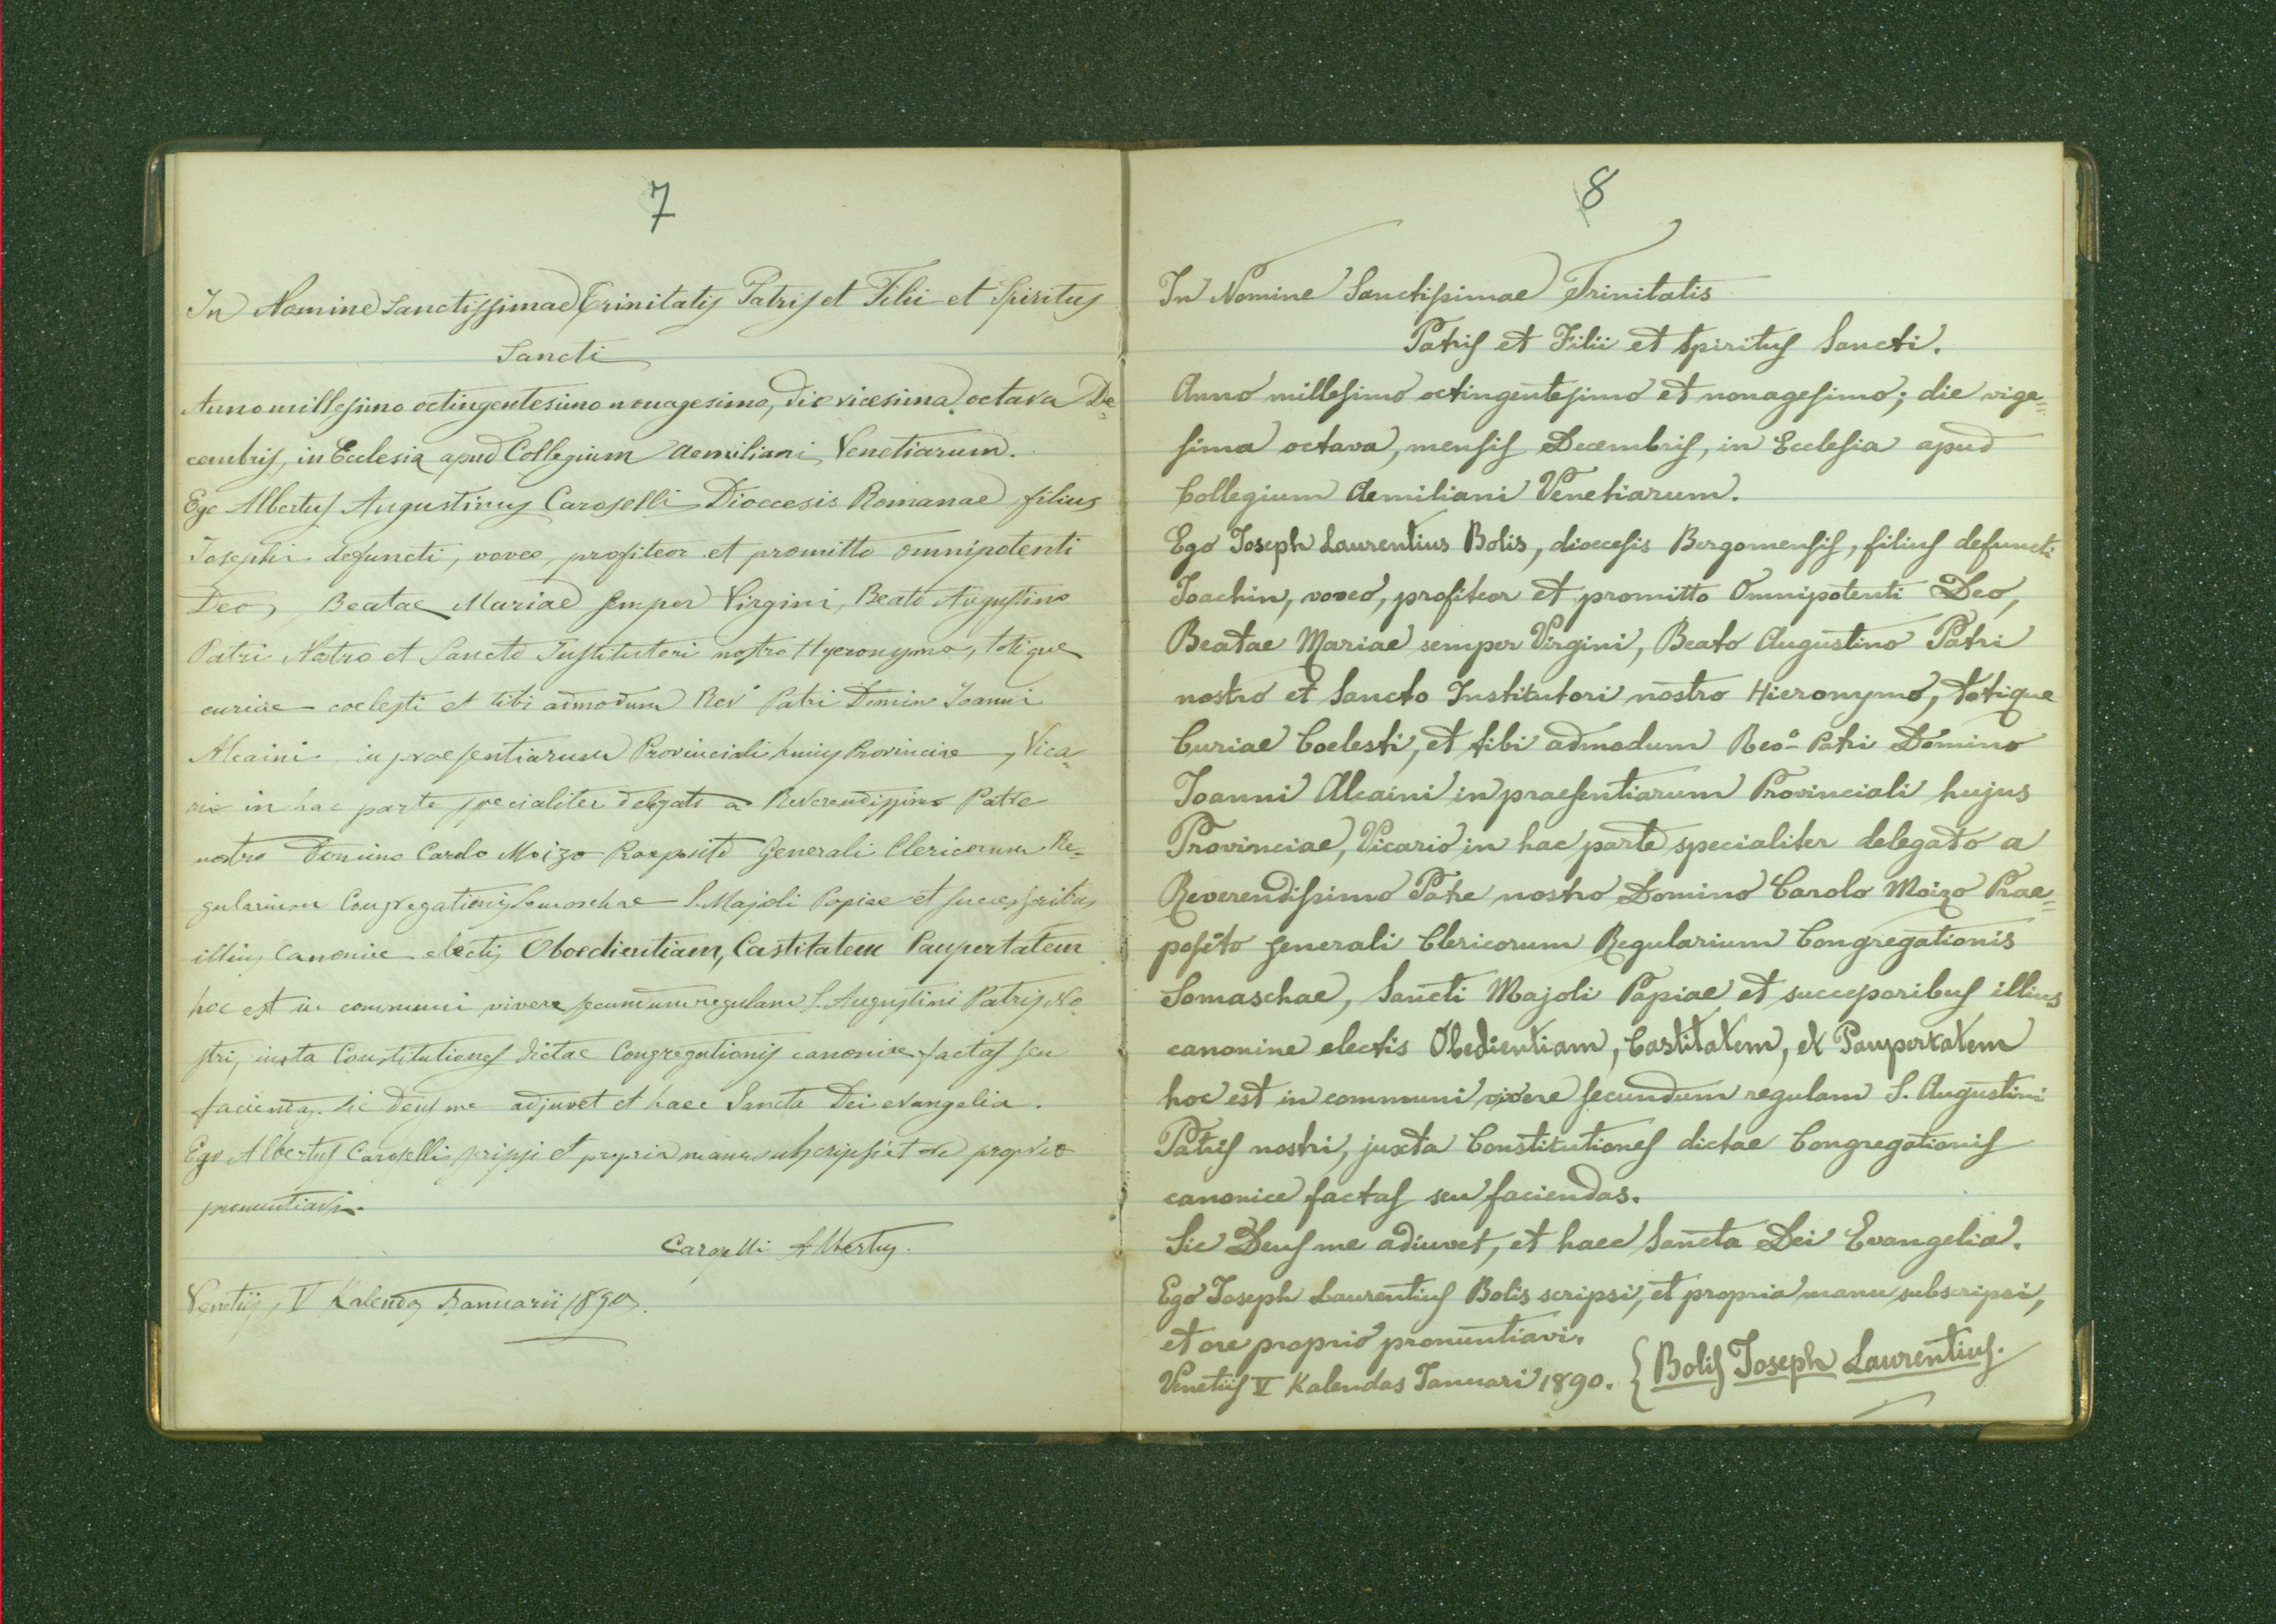 7
In Nomine Sanctissimae Trinitatis Patris et Filii et Spiritus
Sancti
Anno millesimo octingentesimo nonagesimo, die vicesima octava De=
cembris, in Ecclesia apud Collegium Aemiliani Venetiarum.
Ego Albertus Augustinus Caroselli Dioecesis Romanae filius
Josephi defuncti, voveo, profiteor et promitto omnipotenti
Deo, Beatae Mariae semper Virgini, Beato Augustino
Patri Nostro et Sancto Institutori nostro Hyeronymo, totique
curiae coelesti et tibi admodum Rev° Patri Domino Joanni
Alcaini in praesentiarum Provinciali huius Provinciae, Vica=
rio in hac parte specialiter delegato a Reverendissimo Patre
nostro Domino Carolo Moizo Praeposito Generali Clericorum Re=
gularium Congregationis Somaschae S. Majoli Papiae et successoribus
illius canonice electis Oboedientiam, Castitatem Paupertatem
hoc est in communi vivere secundum regulam S. Augustini Patris No
stri, iuxta Constitutiones dictae Congregationis canonice factas seu
faciendas. Sic Deus me adjuvet et haec Sancta Dei evangelia.
Ego Albertus Caroselli scripsi et propria manu subscripsi et ore proprio
pronuntiavi.
Caroselli Albertus.
Venetiis, V Kalendas Januarii 1890.
8
In Nomine Sanctissimae Trinitatis
Patris et Filii et Spiritus Sancti.
Anno millesimo octingentesimo et nonagesimo; die vige=
sima octava, mensis Decembris, in Ecclesia apud
Collegium Aemiliani Venetiarum.
Ego Joseph Laurentius Bolis, dioecesis Bergomensis, filius defuncti
Joachin, voveo, profiteor et promitto Omnipotenti Deo,
Beatae Mariae semper Virgini, Beato Augustino Patri
nostro et Sancto Institutori nostro Hieronymo, totique
Curiae Coelesti, et tibi admodum Reo° Patri Domino
Joanni Alcaini in praesentiarum Provinciali hujus
Provinciae, Vicario in hac parte specialiter delegato a
Reverendissimo Patre nostro Domino Carolo Moizo Prae=
posito generali Clericorum Regularium Congregationis
Somaschae, Sancti Majoli Papiae et successoribus illius
canonine electis Obedientiam, Castitatem, et Paupertatem
hoc est in communi vivere secundum regulam S. Augustini
Patris nostri, juxta Constitutiones dictae Congregationis
canonice factas seu faciendas.
Sic Deus me adiuvet, et haec Sancta Dei Evangelia.
Ego Joseph Laurentius Bolis scripsi, et propria manu subscripsi,
et ore proprio pronuntiavi.
Venetiis V Kalendas Januari 1890. { Bolis Joseph Laurentius.